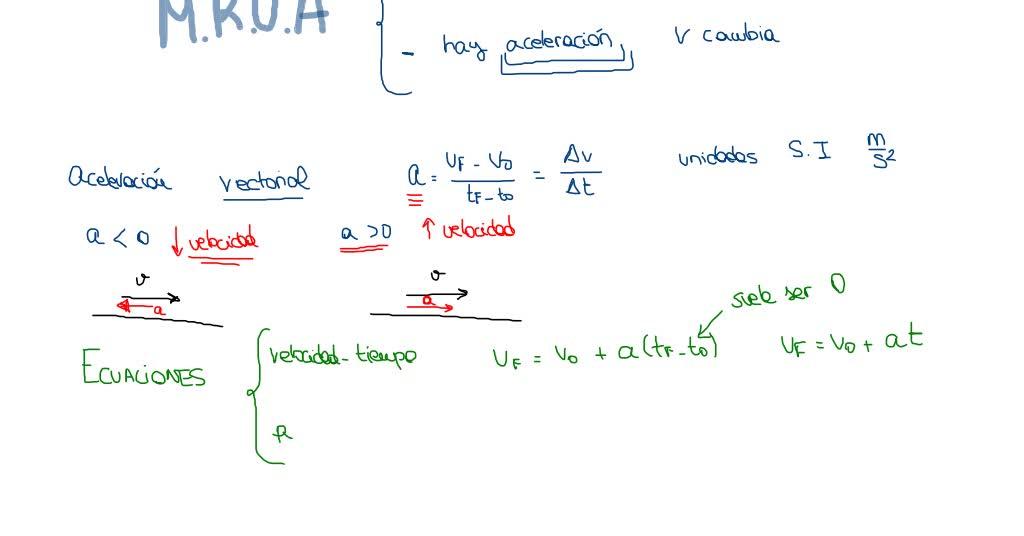 M.R.U.A
- hay aceleración V cambia
Aceleración vectorial a = VF - V0 / tF - t0 = Δv / Δt unidades S.I m/s²
a < 0 ↓ velocidad a > 0 ↑ velocidad
v v
a a
suele ser 0
ECUACIONES velocidad - tiempo VF = V0 + a(tF - t0) VF = V0 + at